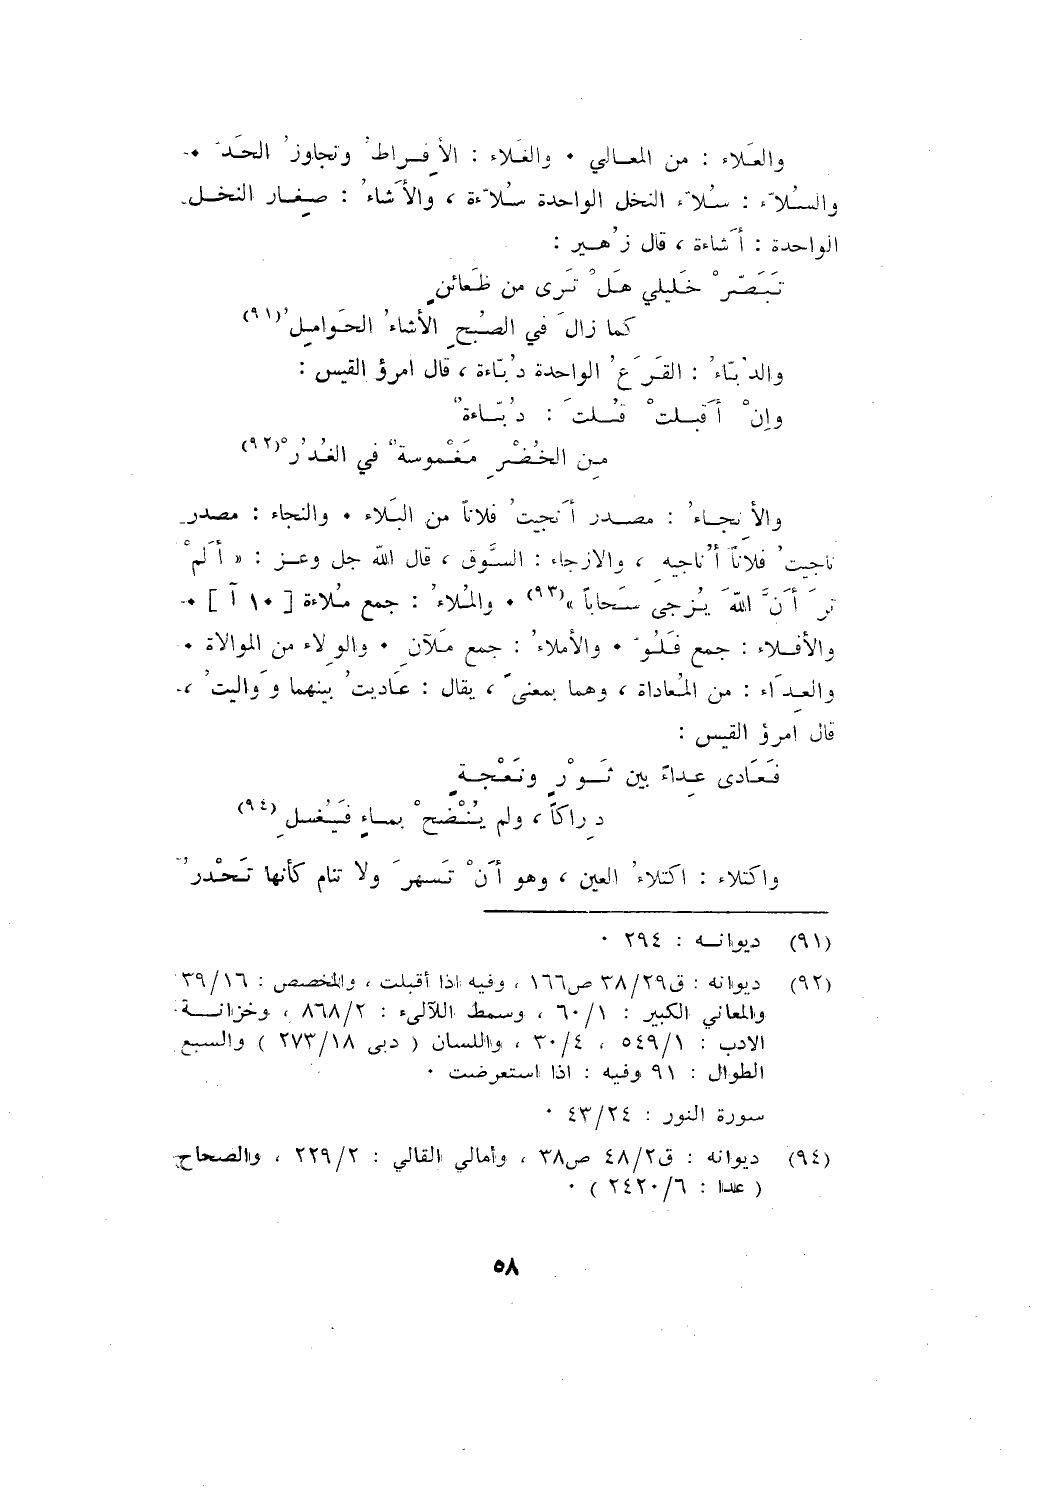 والعَلاء : من المعالي . والغَلاء : الأِفراطُ وتجاوزُ الحَدّ .
والسُلاّء : سُلاّء النخل الواحدة سُلاّءة ، والأَشاءُ : صِغار النخل
الواحدة : أَشاءة ، قال زُهير :
تَبَصّرْ خَليلي هَلْ تَرى من ظَعائنٍ
كما زالَ في الصُبحِ الأشاءُ الحَوامِلُ(٩١)
والدُبّاءُ : القَرَعُ الواحدة دُبّاءة ، قال امرؤ القيس :
وإنْ أَقبلتْ قُلتَ : دُبّاءةٌ
مِن الخُضْرِ مَغْموسةٌ في الغُدُرْ(٩٢)
والأِنجاءُ : مصدر أَنجيتُ فلاناً من البَلاء . والنجاء : مصدر
ناجيتُ فلاناً أُناجيهِ ، والازجاء : السَّوق ، قال اللّه جل وعز : « أَلمْ
ترَ أَنَّ اللّهَ يُزجى سَحاباً »(٩٣) . والمُلاءُ : جمع مُلاءة [ ١٠ آ ] .
والأفلاء : جمع فَلُوّ . والأملاءُ : جمع مَلآنِ . والوِلاء من الموالاة .
والعِدَاء : من المُعاداة ، وهما بمعنىً ، يقال : عَاديتُ بينهما وَواليتُ ،
قال امرؤ القيس :
فَعَادى عِداءً بين ثَوْرٍ ونَعْجةٍ
دِراكاً ، ولم يُنْضحْ بماءٍ فَيُغسلِ(٩٤)
واكتلاء : اكتلاءُ العين ، وهو أَنْ تَسهرَ ولا تنام كأنها تَحْذرُ
(٩١) ديوانه : ٢٩٤ .
(٩٢) ديوانه : ق٣٨/٢٩ ص١٦٦ ، وفيه اذا أقبلت ، والمخصص : ٣٩/١٦
والمعاني الكبير : ٦٠/١ ، وسمط اللآلىء : ٨٦٨/٢ ، وخزانة
الادب : ٥٤٩/١ ، ٣٠/٤ ، واللسان ( دبى ٢٧٣/١٨ ) والسبع
الطوال : ٩١ وفيه : اذا استعرضت .
سورة النور : ٤٣/٢٤ .
(٩٤) ديوانه : ق٤٨/٢ ص٣٨ ، وأمالي القالي : ٢٢٩/٢ ، والصحاح
( عدا : ٢٤٢٠/٦ ) .
٥٨